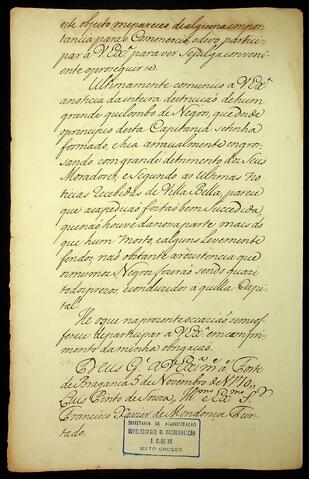 este objecto me parece de alguma impor-
tancia para o Commercio, o devo partici-
par a V Exª para ver se julga conveni-
ente o proseguirse.
Ultimamente comunico a V Exª
a noticia da inteira destruicaõ de hum
grande quilombo de Negros, que desde
o principio desta Capitania se tinha
formado, e hia annualmente engros-
sando com grande detrimento dos seus
Moradores, e segundo as ultimas No-
ticias recebidas de Villa Bella, parece
que a expediçaõ foi taõ bem succedida,
que naõ houve da nossa parte mais do
que hum morto, e alguns levemente
feridos, naõ obstante a rezistencia que
os mesmos Negros fizeraõ sendo quazi
todos prezos, e conduzidos aquella Capi-
tal.
He o que na prezente occaziaõ se me of-
ferece de participar a V Exª em comprí-
mento da minha obrigaçaõ.
Deus Gᵉ a V Exª mˢ aˢ Forte
de Bragança 5 de Novembro de 1770
Luis Pinto de Souza, Illᵐᵒ e Exᵐᵒ Sʳ
Francisco Xavier de Mendonça Fur-
tado.
SECRETARIA DE ADMINISTRAÇÃO
MATO GROSSO